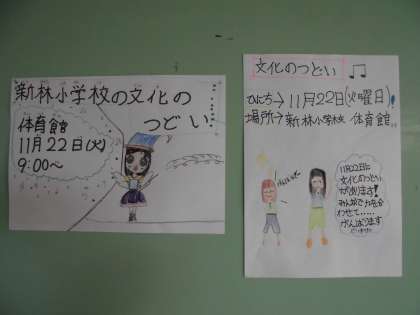 新林小学校の文化の
つどい
体育館
11月22日(火)
9:00～
文化のつどい
ひにち→11月22日(火曜日)
場所→新林小学校 体育館
11月22日に
文化のつどい
があります!
みんなで力を合
わせて.....
がんばります